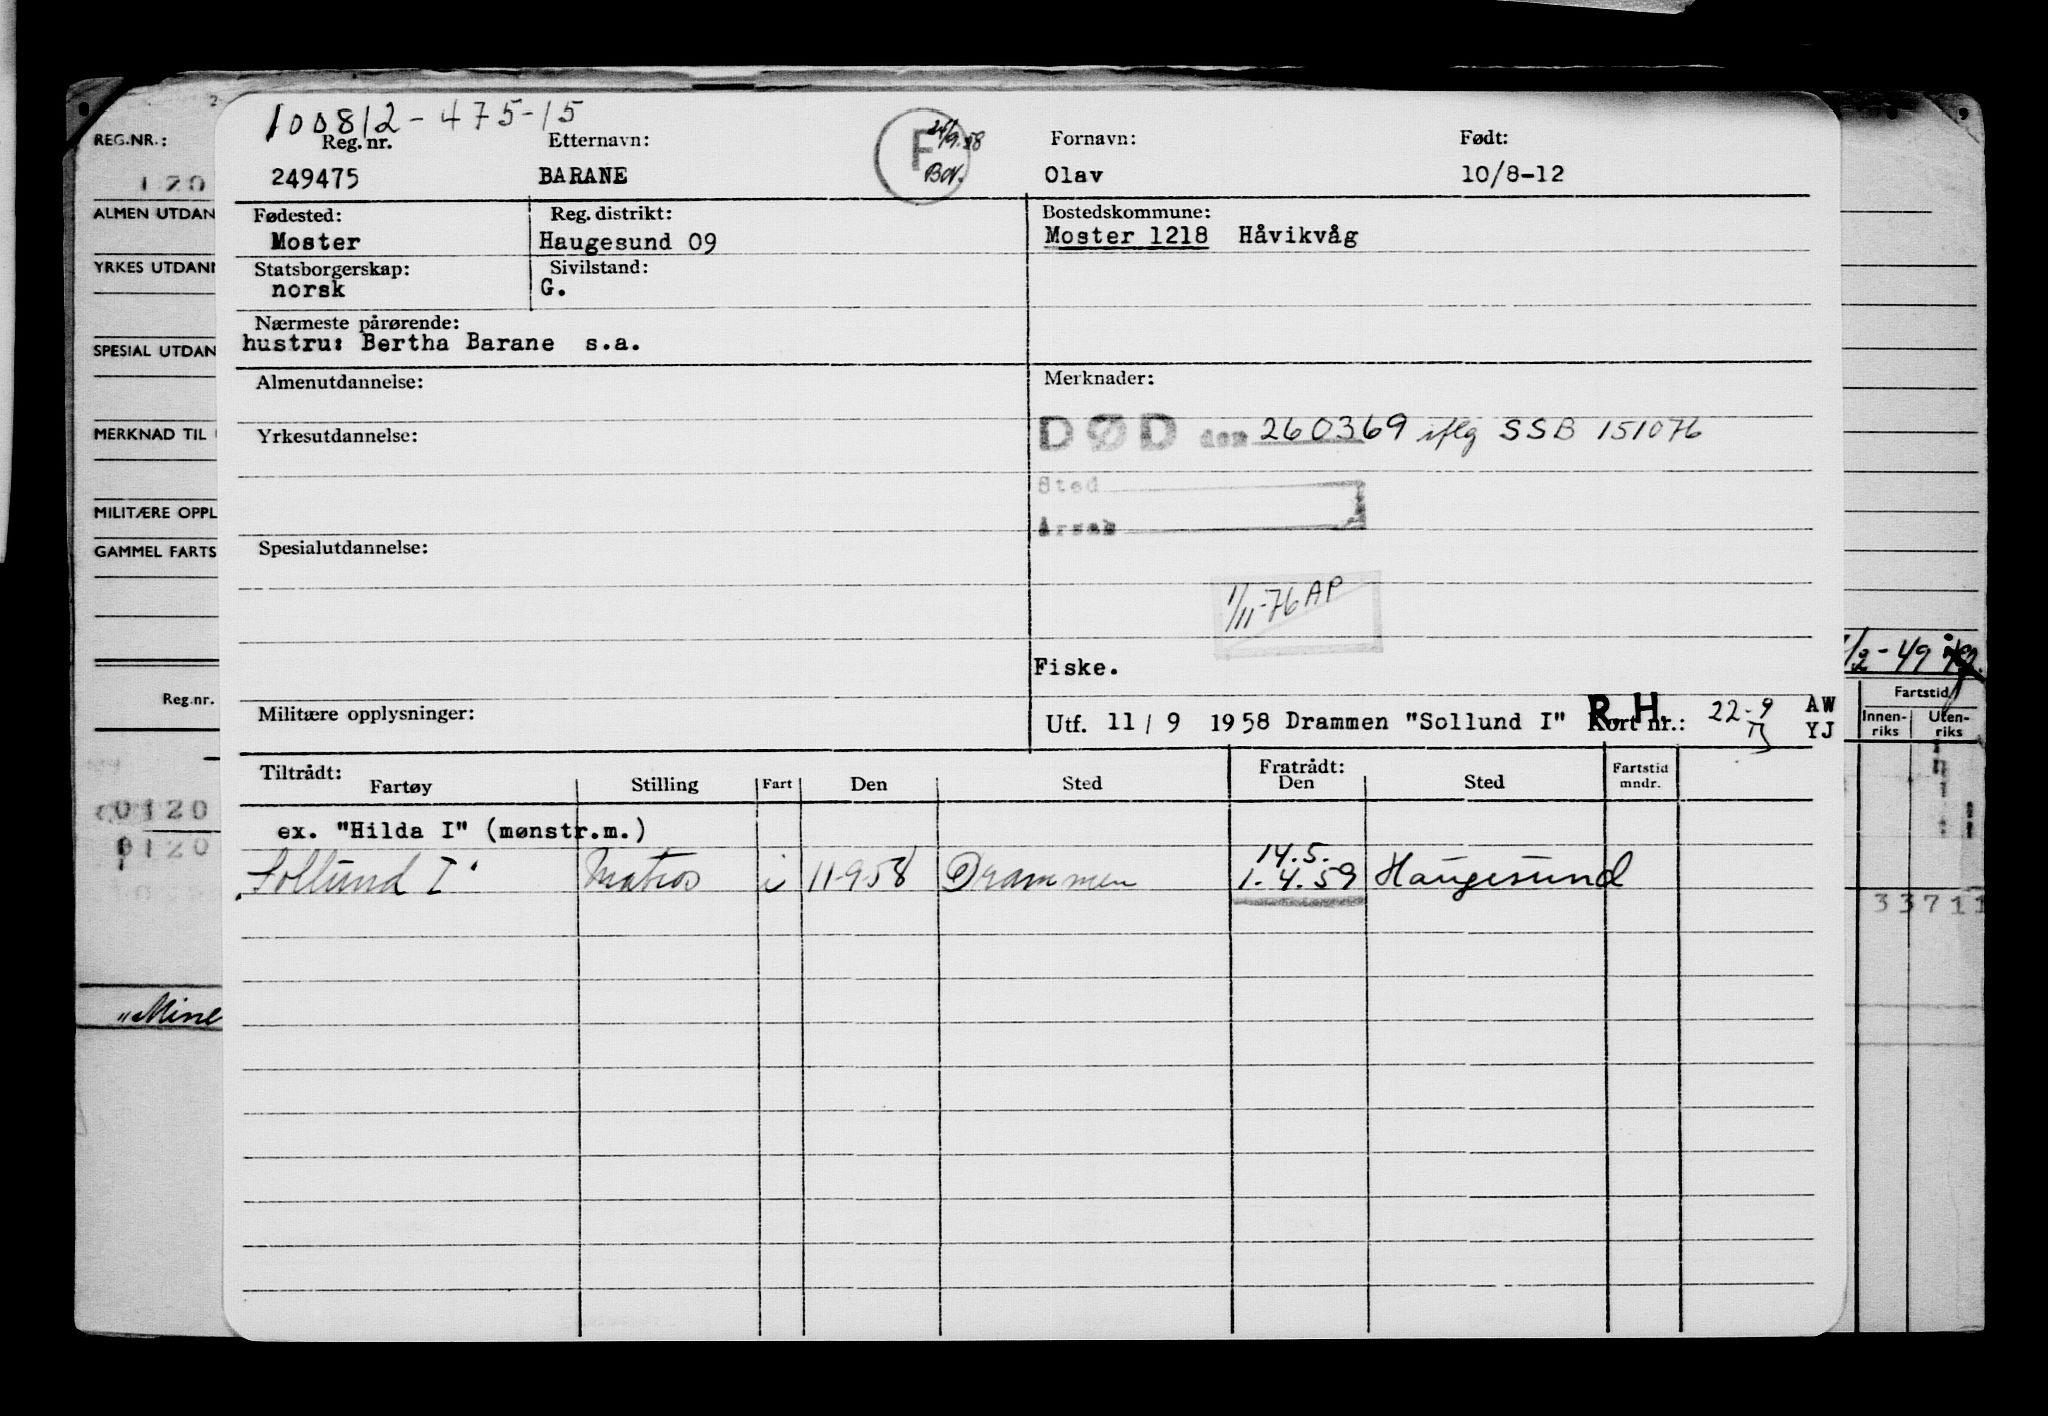 100812-475-15
Reg. nr. Etternavn: Fornavn: Født:
249475 BARANE F 24/9.58 Olav 10/8-12
Fødested: Reg. distrikt: Bostedskommune:
Moster Haugesund 09 Moster 1218 Håvikvåg
Statsborgerskap: Sivilstand:
norsk G.
Nærmeste pårørende:
hustru: Bertha Barane s.a.
Almenutdannelse: Merknader:
DØD den 260369 iflg SSB 151076
Yrkesutdannelse:
Sted
Årsak
Spesialutdannelse:
1/11-76 AP
Fiske.
Militære opplysninger: Utf. 11/9 1958 Drammen "Sollund I" R.H. Kort nr.: 22-9 AW
YJ
Tiltrådt: Fratrådt: Fartstid
Fartøy Stilling Fart Den Sted Den Sted mndr.
ex. "Hilda I" (mønstr.m.)
14.5.
"Sollund I" Matros i 11-9-58 Drammen 1.4.59 Haugesund
REG.NR.:
120
ALMEN UTDAN
YRKES UTDANN
SPESIAL UTDAN
MERKNAD TIL
MILITÆRE OPPL
GAMMEL FARTS
Reg.nr.
0120
0120
"Mine
1/2-49
Fartstid
Innen- Uten-
riks riks
33711